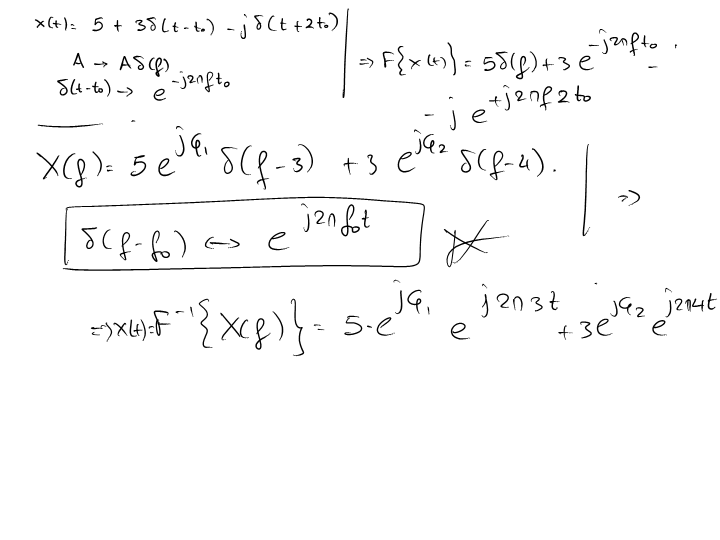 x(t)= 5 + 3δ(t-t₀) - jδ(t+2t₀)
A → Aδ(f)
δ(t-t₀) → e^{-j2πft₀}
⇒ F{x(t)} = 5δ(f) + 3 e^{-j2πft₀} -
- j e^{+j2πf2t₀}
X(f)= 5 e^{jφ₁} δ(f-3) + 3 e^{jφ₂} δ(f-4). ⇒
δ(f-f₀) ↔ e^{j2πf₀t}
⇒ x(t)= F⁻¹{X(f)} = 5·e^{jφ₁} e^{j2π3t} + 3e^{jφ₂} e^{j2π4t}